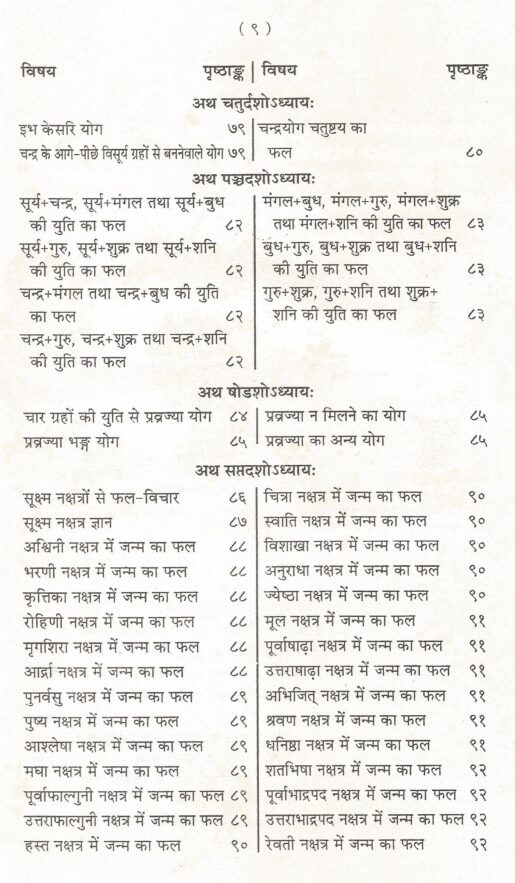 ( ९ )
विषय पृष्ठाङ्क | विषय पृष्ठाङ्क
अथ चतुर्दशोऽध्यायः
इभ केसरि योग ७९
चन्द्र के आगे-पीछे विसूर्य ग्रहों से बननेवाले योग ७९
चन्द्रयोग चतुष्टय का
फल ८०
अथ पञ्चदशोऽध्यायः
सूर्य+चन्द्र, सूर्य+मंगल तथा सूर्य+बुध
की युति का फल ८२
सूर्य+गुरु, सूर्य+शुक्र तथा सूर्य+शनि
की युति का फल ८२
चन्द्र+मंगल तथा चन्द्र+बुध की युति
का फल ८२
चन्द्र+गुरु, चन्द्र+शुक्र तथा चन्द्र+शनि
की युति का फल ८२
मंगल+बुध, मंगल+गुरु, मंगल+शुक्र
तथा मंगल+शनि की युति का फल ८३
बुध+गुरु, बुध+शुक्र तथा बुध+शनि
की युति का फल ८३
गुरु+शुक्र, गुरु+शनि तथा शुक्र+
शनि की युति का फल ८३
अथ षोडशोऽध्यायः
चार ग्रहों की युति से प्रव्रज्या योग ८४
प्रव्रज्या भङ्ग योग ८५
प्रव्रज्या न मिलने का योग ८५
प्रव्रज्या का अन्य योग ८५
अथ सप्तदशोऽध्यायः
सूक्ष्म नक्षत्रों से फल-विचार ८६
सूक्ष्म नक्षत्र ज्ञान ८७
अश्विनी नक्षत्र में जन्म का फल ८८
भरणी नक्षत्र में जन्म का फल ८८
कृत्तिका नक्षत्र में जन्म का फल ८८
रोहिणी नक्षत्र में जन्म का फल ८८
मृगशिरा नक्षत्र में जन्म का फल ८८
आर्द्रा नक्षत्र में जन्म का फल ८८
पुनर्वसु नक्षत्र में जन्म का फल ८९
पुष्य नक्षत्र में जन्म का फल ८९
आश्लेषा नक्षत्र में जन्म का फल ८९
मघा नक्षत्र में जन्म का फल ८९
पूर्वाफाल्गुनी नक्षत्र में जन्म का फल ८९
उत्तराफाल्गुनी नक्षत्र में जन्म का फल ८९
हस्त नक्षत्र में जन्म का फल ९०
चित्रा नक्षत्र में जन्म का फल ९०
स्वाति नक्षत्र में जन्म का फल ९०
विशाखा नक्षत्र में जन्म का फल ९०
अनुराधा नक्षत्र में जन्म का फल ९०
ज्येष्ठा नक्षत्र में जन्म का फल ९०
मूल नक्षत्र में जन्म का फल ९१
पूर्वाषाढ़ा नक्षत्र में जन्म का फल ९१
उत्तराषाढ़ा नक्षत्र में जन्म का फल ९१
अभिजित् नक्षत्र में जन्म का फल ९१
श्रवण नक्षत्र में जन्म का फल ९१
धनिष्ठा नक्षत्र में जन्म का फल ९१
शतभिषा नक्षत्र में जन्म का फल ९२
पूर्वाभाद्रपद नक्षत्र में जन्म का फल ९२
उत्तराभाद्रपद नक्षत्र में जन्म का फल ९२
रेवती नक्षत्र में जन्म का फल ९२